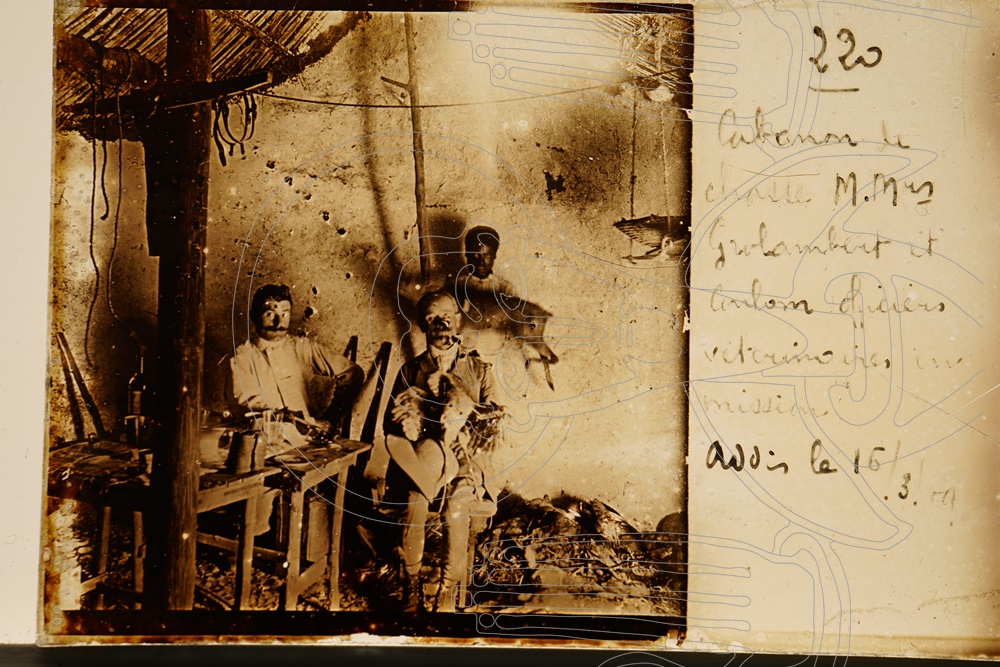 220
Cabanon de
chasse M.Mrs
Grolambert et
officiers
vétérinaires en
mission
Addis le 16/
.3.09